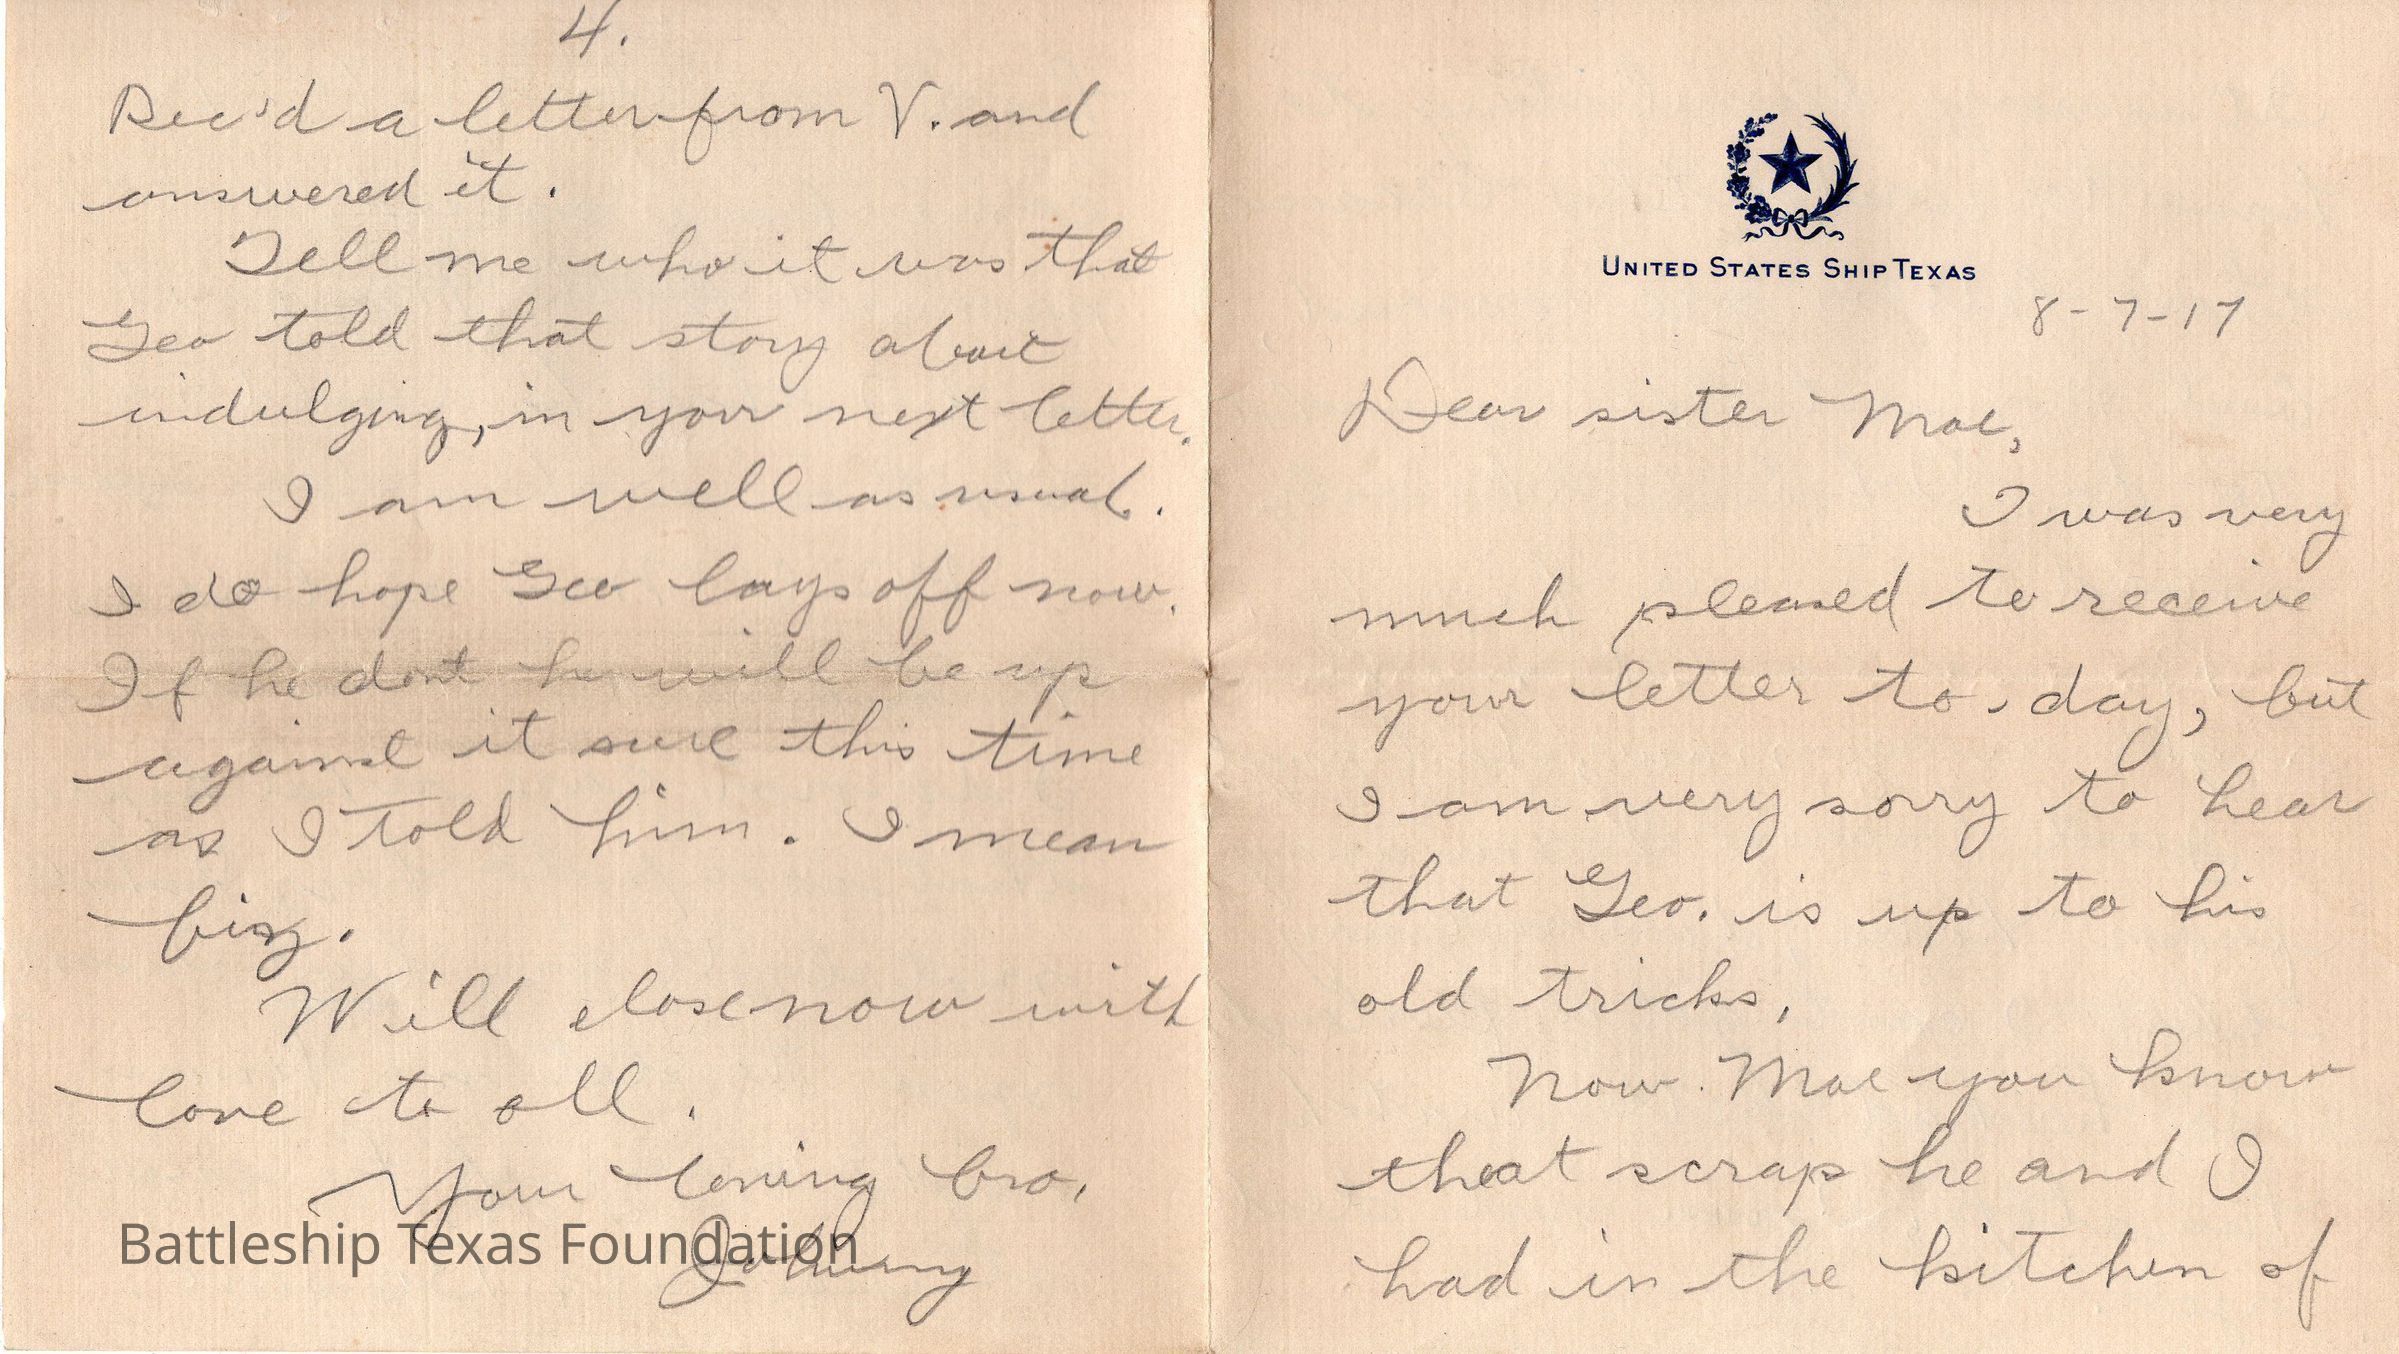 4.
Rec'd a letter from V. and
answered it.
Tell me who it was that
Geo told that story about
indulging, in your next letter.
I am well as usual.
I do hope Geo lays off now.
If he dont he will be up
against it sure this time
as I told him. I mean
biz.
Will close now with
love to all.
Your loving bro,
Johnny
Battleship Texas Foundation
UNITED STATES SHIP TEXAS
8-7-17
Dear sister Mae,
I was very
much pleased to receive
your letter to-day, but
I am very sorry to hear
that Geo. is up to his
old tricks,
Now. Mae you know
that scrap he and I
had in the kitchen of